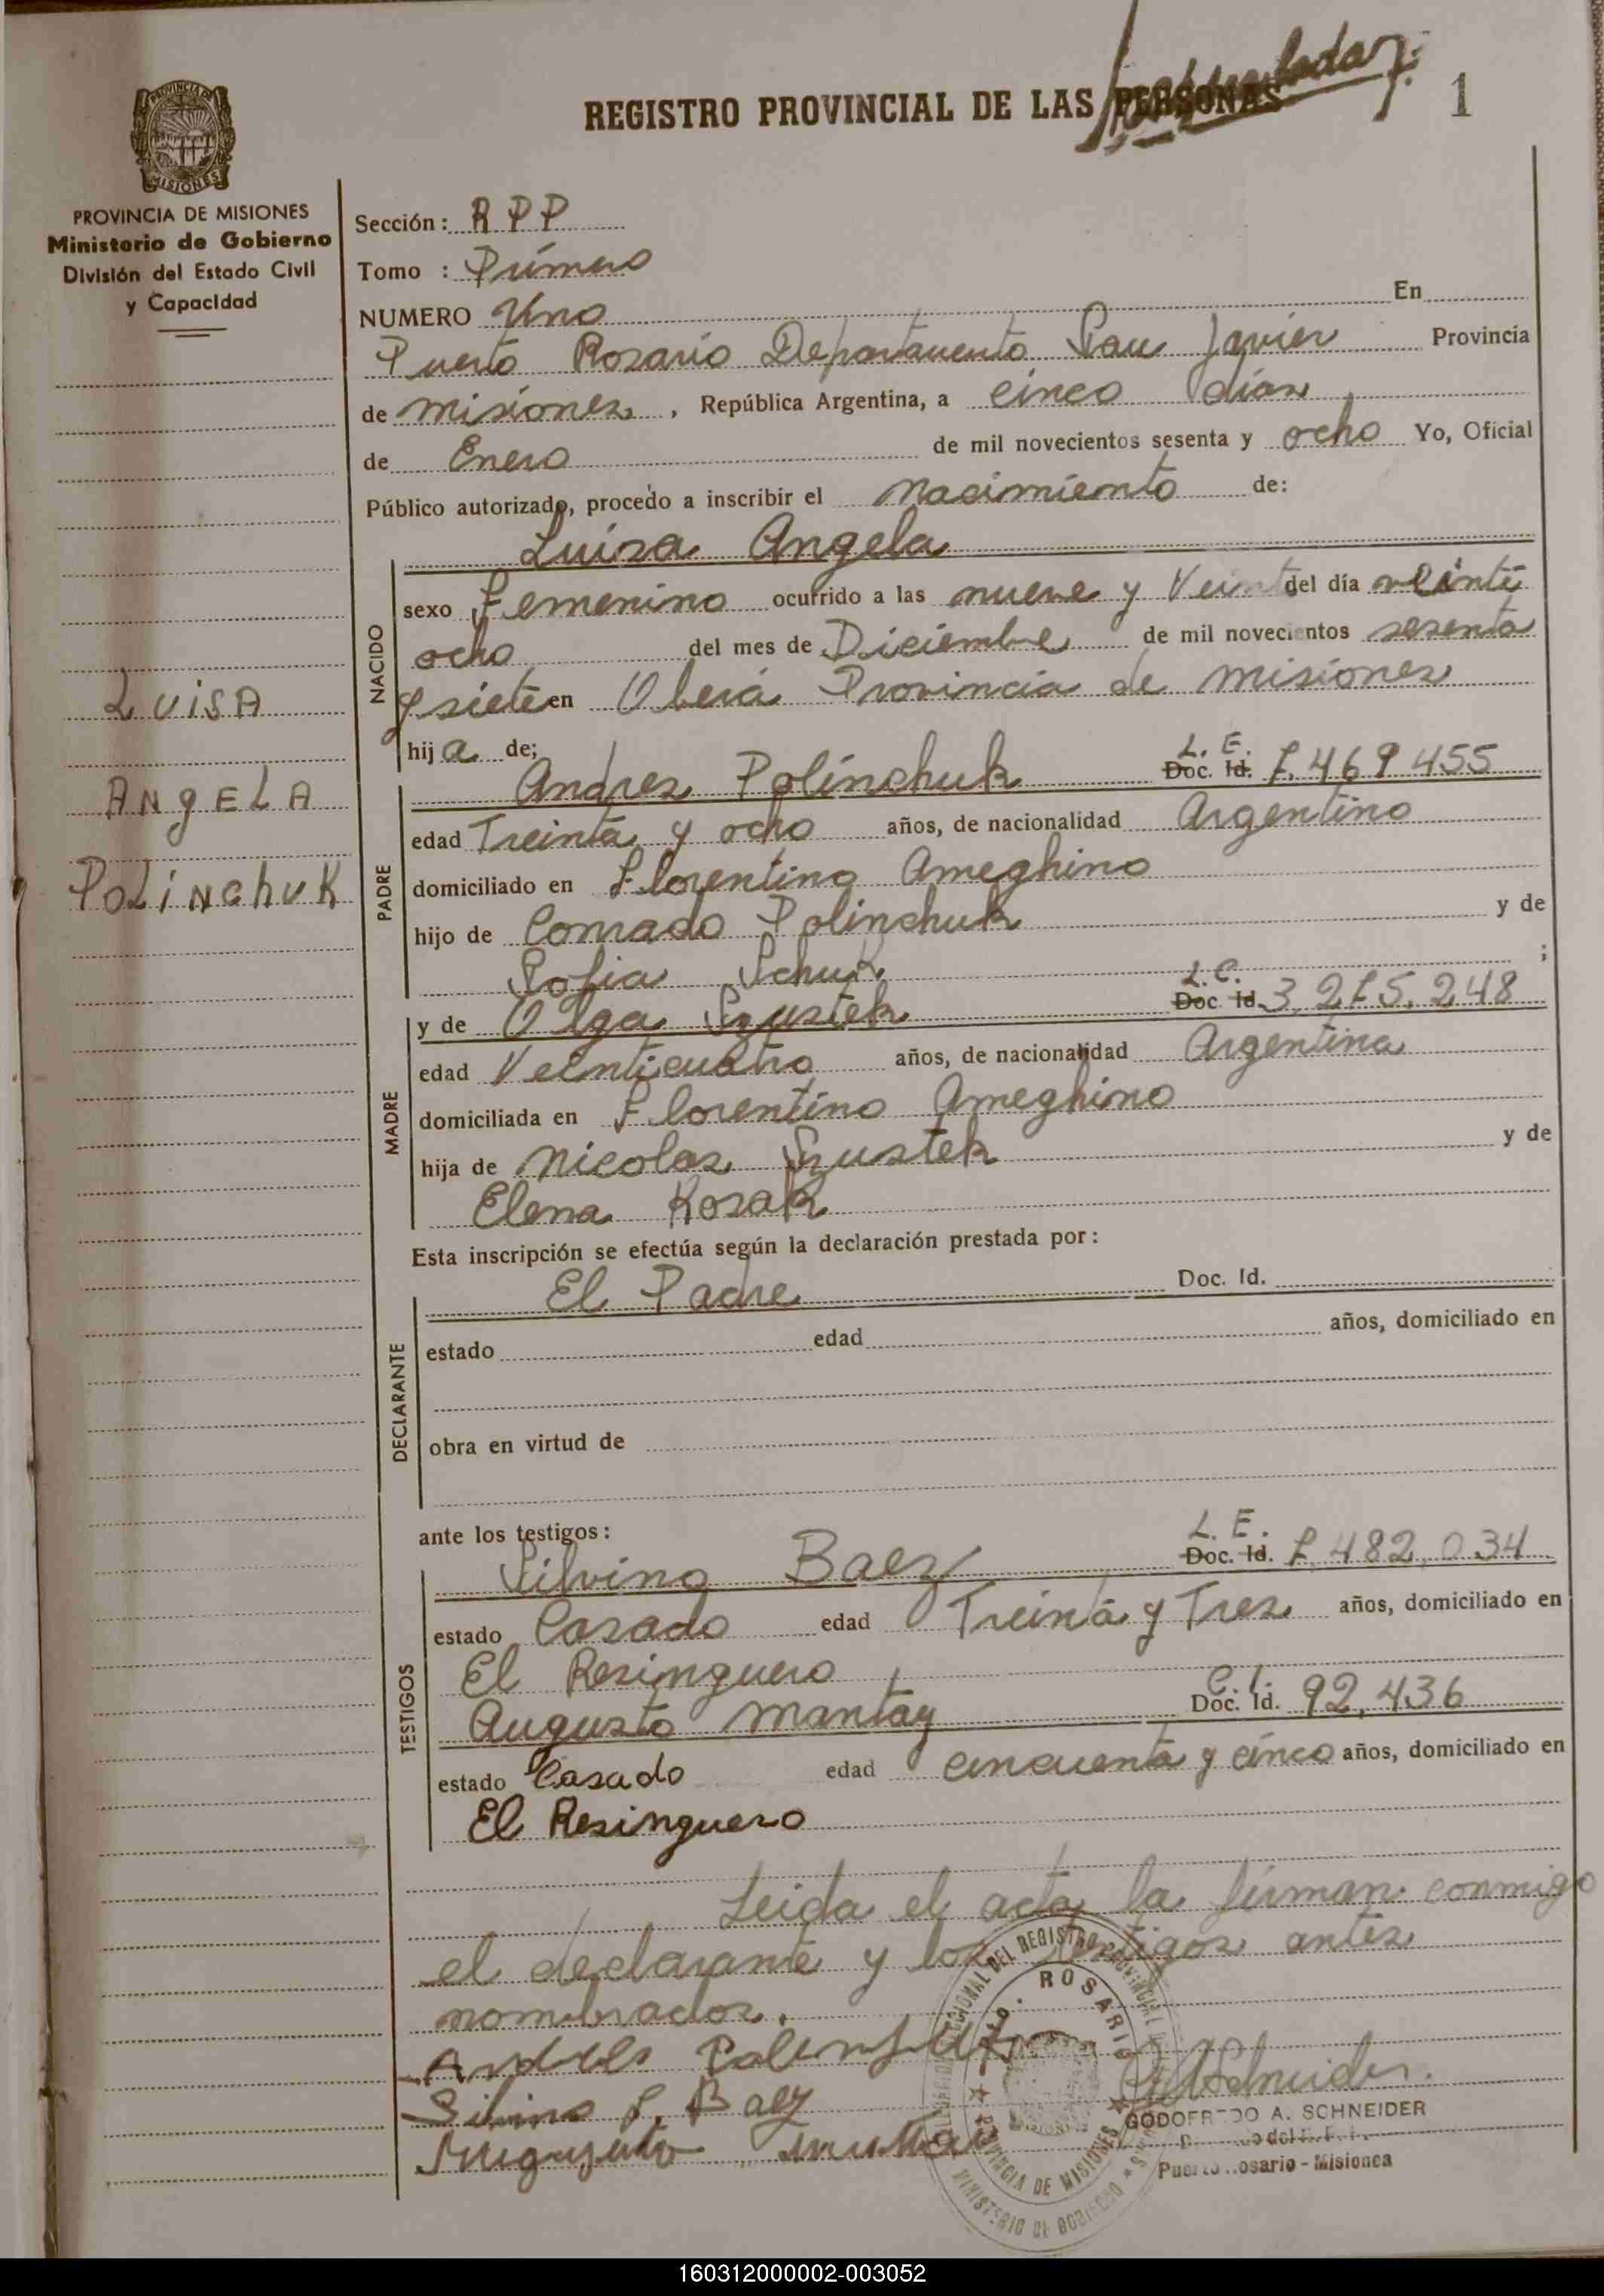 REGISTRO PROVINCIAL DE LAS PERSONAS
1
PROVINCIA DE MISIONES
Ministerio de Gobierno
División del Estado Civil
y Capacidad
Sección: R P P
Tomo : Primero
NUMERO Uno En
Puerto Rosario Departamento San Javier Provincia
de Misiones, República Argentina, a cinco días
de Enero de mil novecientos sesenta y ocho Yo, Oficial
Público autorizado, procedo a inscribir el Nacimiento de:
Luisa Angela
NACIDO
sexo Femenino ocurrido a las nueve y Veinte del día veinti
ocho del mes de Diciembre de mil novecientos sesenta
y siete en Oberá Provincia de Misiones
hija de;
LUISA
ANGELA
POLINCHUK
PADRE
Andres Polinchuk L. E. Doc. Id. 7.469455
edad Treinta y ocho años, de nacionalidad Argentino
domiciliado en Florentino Ameghino
hijo de Conrado Polinchuk y de
Sofia Schuk ;
MADRE
y de Olga Szustek L. C. Doc. Id 248
edad Veinticuatro años, de nacionalidad Argentina
domiciliada en Florentino Ameghino
hija de Nicolas Szustek y de
Elena Kosak
Esta inscripción se efectúa según la declaración prestada por:
DECLARANTE
El Padre Doc. Id.
estado edad años, domiciliado en
obra en virtud de
ante los testigos:
TESTIGOS
Silvino Baez L. E. Doc. Id. 482,034
estado Casado edad Treinta y Tres años, domiciliado en
El Resinguero
Augusto Mantay C. I. Doc. Id. 92,436
estado Casado edad cincuenta y cinco años, domiciliado en
El Resinguero
Leida el acta la firman conmigo
el declarante y los testigos antes
nombrados.
Andres
Silvino Baez
ROSARIO
PROVINCIA DE MISIONES
MINISTERIO DE GOBIERNO
GODOFREDO A. SCHNEIDER
Puerto Rosario - Misiones
160312000002-003052